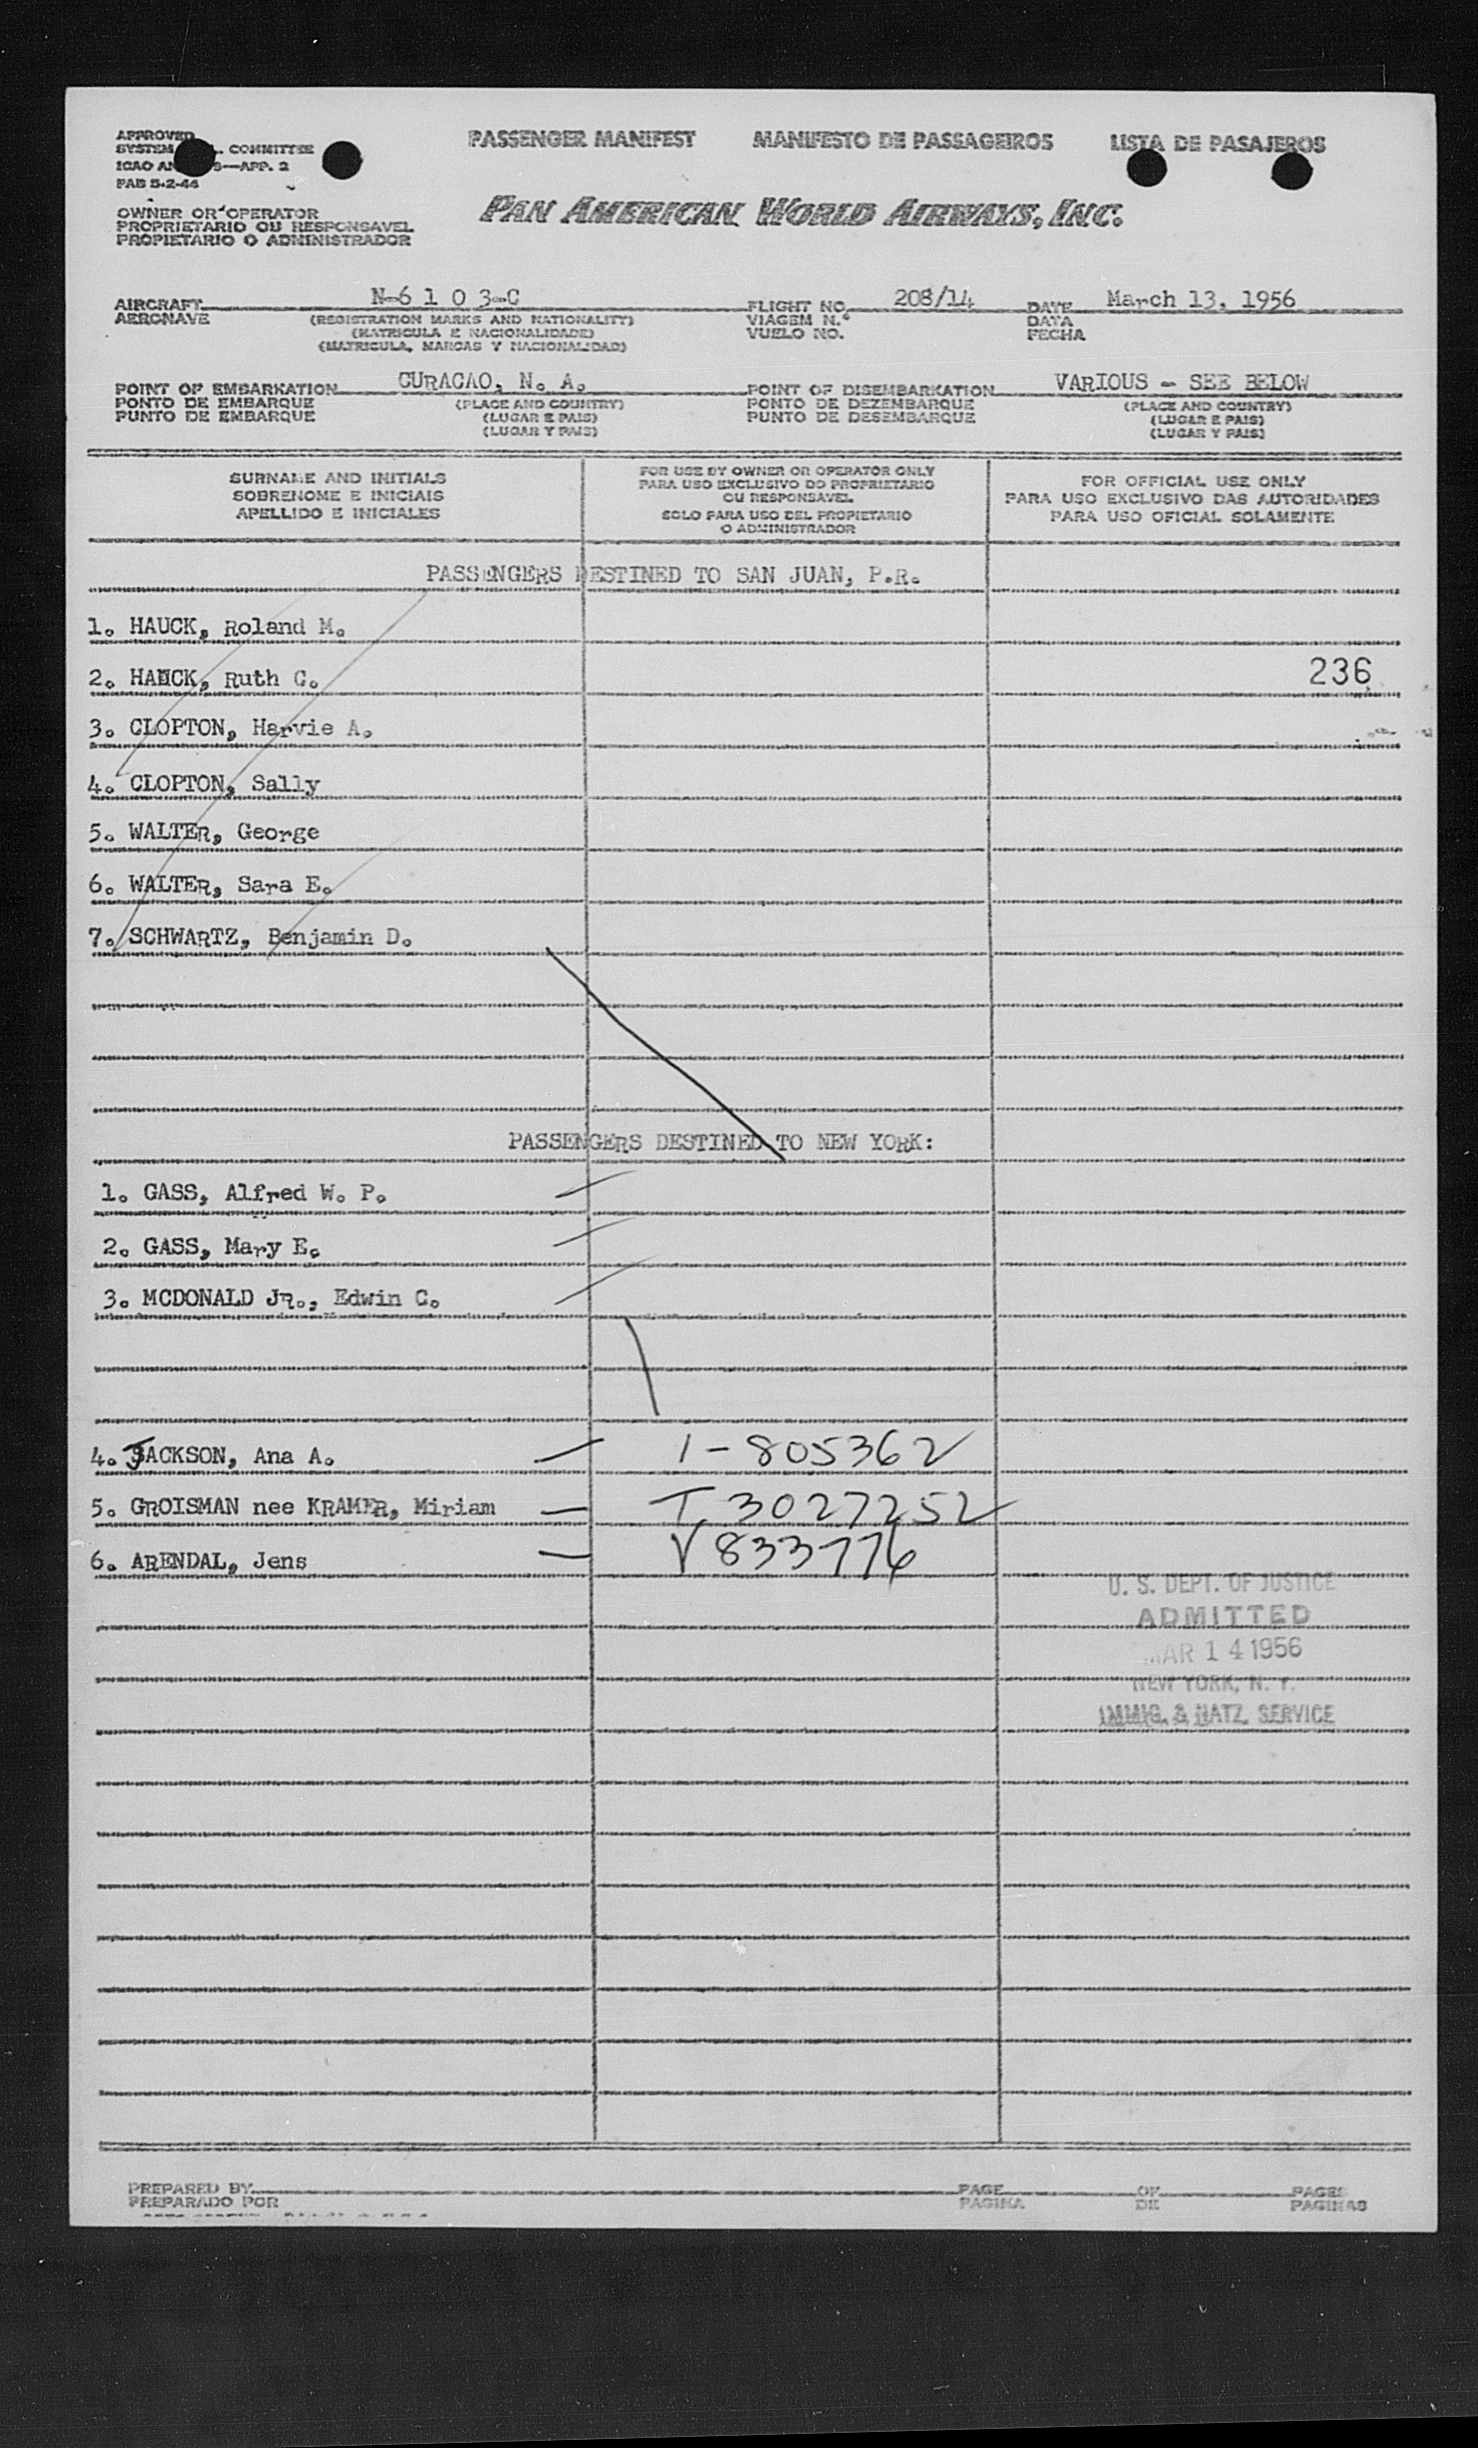 PASSENGER MANIFEST MANIFESTO DE PASSAGEIROS LISTA DE PASAJEROS
APPROVED
SYSTEM L. COMMITTEE
ICAO AN 9—APP. 2
PAB 5-2-46
PAN AMERICAN WORLD AIRWAYS, INC.
OWNER OR OPERATOR
PROPRIETARIO OU RESPONSAVEL
PROPIETARIO O ADMINISTRADOR
AIRCRAFT N-6 1 0 3-C FLIGHT NO. 208/14 DATE March 13, 1956
AERONAVE (REGISTRATION MARKS AND NATIONALITY) VIAGEM N.º DATA
(MATRICULA E NACIONALIDADE) VUELO NO. FECHA
(MATRICULA, MARCAS Y NACIONALIDAD)
POINT OF EMBARKATION CURACAO, N. A. POINT OF DISEMBARKATION VARIOUS - SEE BELOW
PONTO DE EMBARQUE (PLACE AND COUNTRY) PONTO DE DEZEMBARQUE (PLACE AND COUNTRY)
PUNTO DE EMBARQUE (LUGAR E PAIS) PUNTO DE DESEMBARQUE (LUGAR E PAIS)
(LUGAR Y PAIS) (LUGAR Y PAIS)
SURNAME AND INITIALS
SOBRENOME E INICIAIS
APELLIDO E INICIALES
FOR USE BY OWNER OR OPERATOR ONLY
PARA USO EXCLUSIVO DO PROPRIETARIO
OU RESPONSAVEL
SOLO PARA USO DEL PROPIETARIO
O ADMINISTRADOR
FOR OFFICIAL USE ONLY
PARA USO EXCLUSIVO DAS AUTORIDADES
PARA USO OFICIAL SOLAMENTE
PASSENGERS DESTINED TO SAN JUAN, P.R.
1. HAUCK, Roland M.
2. HAUCK, Ruth C. 236
3. CLOPTON, Harvie A.
4. CLOPTON, Sally
5. WALTER, George
6. WALTER, Sara E.
7. SCHWARTZ, Benjamin D.
PASSENGERS DESTINED TO NEW YORK:
1. GASS, Alfred W. P.
2. GASS, Mary E.
3. MCDONALD JR., Edwin C.
4. JACKSON, Ana A. — 1-805362
5. GROISMAN nee KRAMER, Miriam — T 3027252
6. ARENDAL, Jens — V 833776
U. S. DEPT. OF JUSTICE
ADMITTED
MAR 14 1956
NEW YORK, N. Y.
IMMIG. & NATZ. SERVICE
PREPARED BY PAGE OF PAGES
PREPARADO POR PAGINA DE PAGINAS